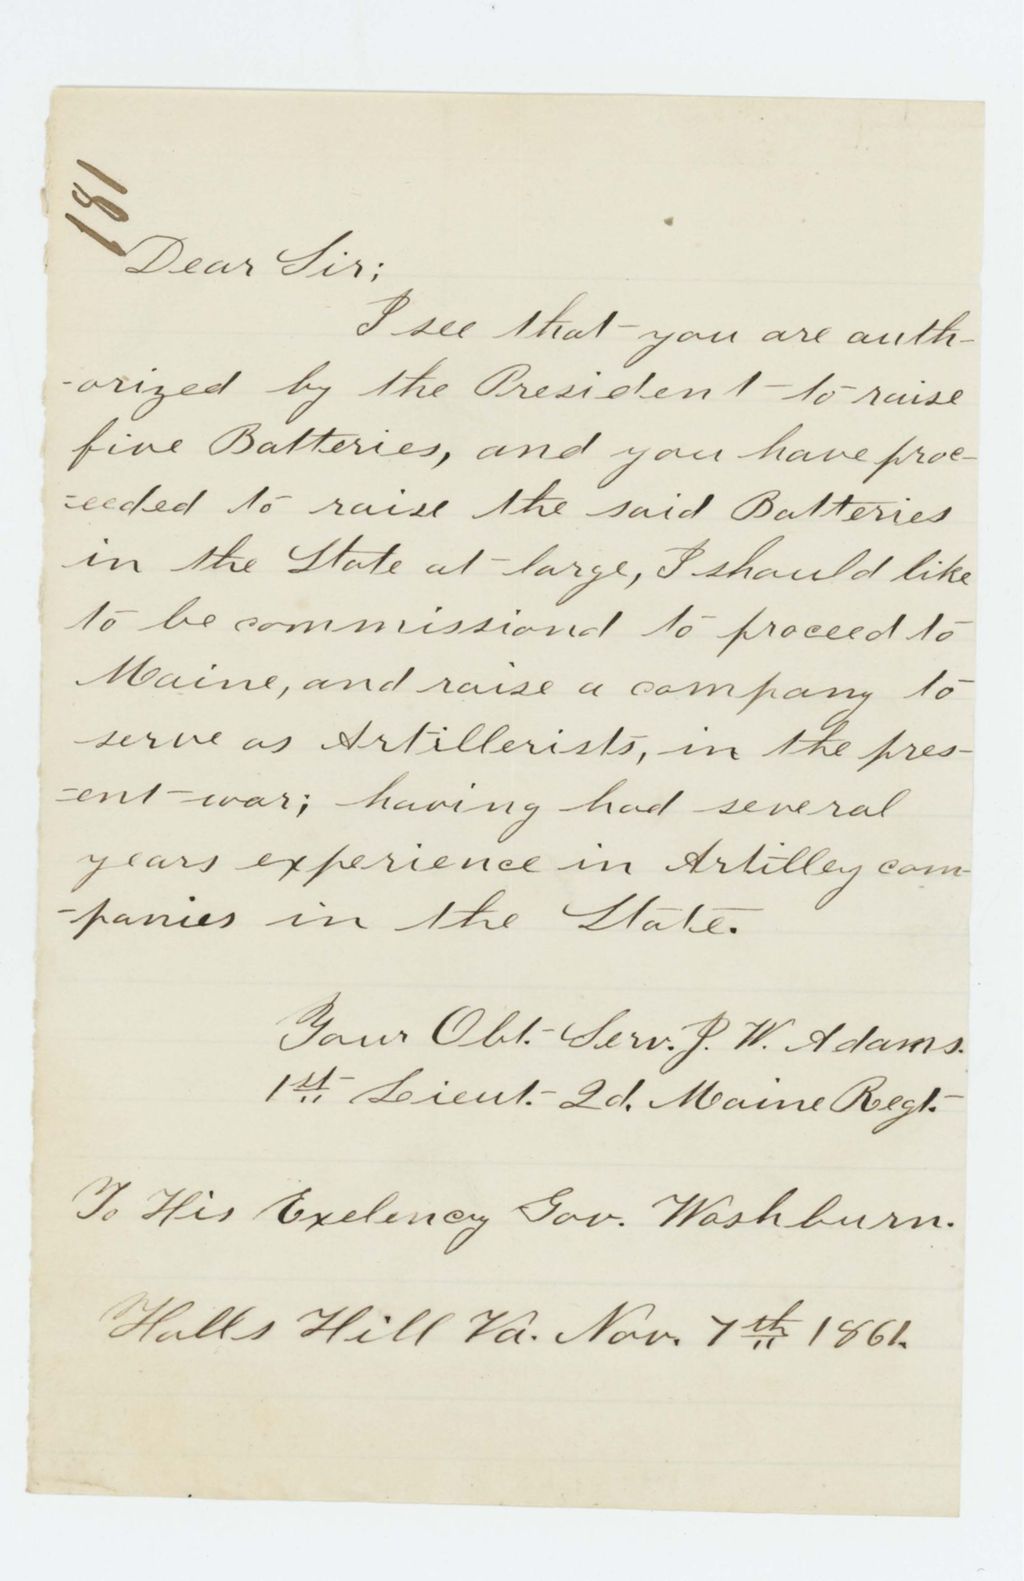 181
Dear Sir;
I see that you are auth-
-orized by the President to raise
five Batteries, and you have proc-
=eeded to raise the said Batteries
in the State at large, I should like
to be commissiond to proceed to
Maine, and raise a company to
serve as Artillerists, in the pres-
=ent war; having had several
years experience in Artilley com-
-panies in the State.
Your Obt. Serv. J. W. Adams.
1st Lieut. 2d. Maine Regt.
To His Exelency Gov. Washburn.
Halls Hill Va. Nov. 7th 1861.